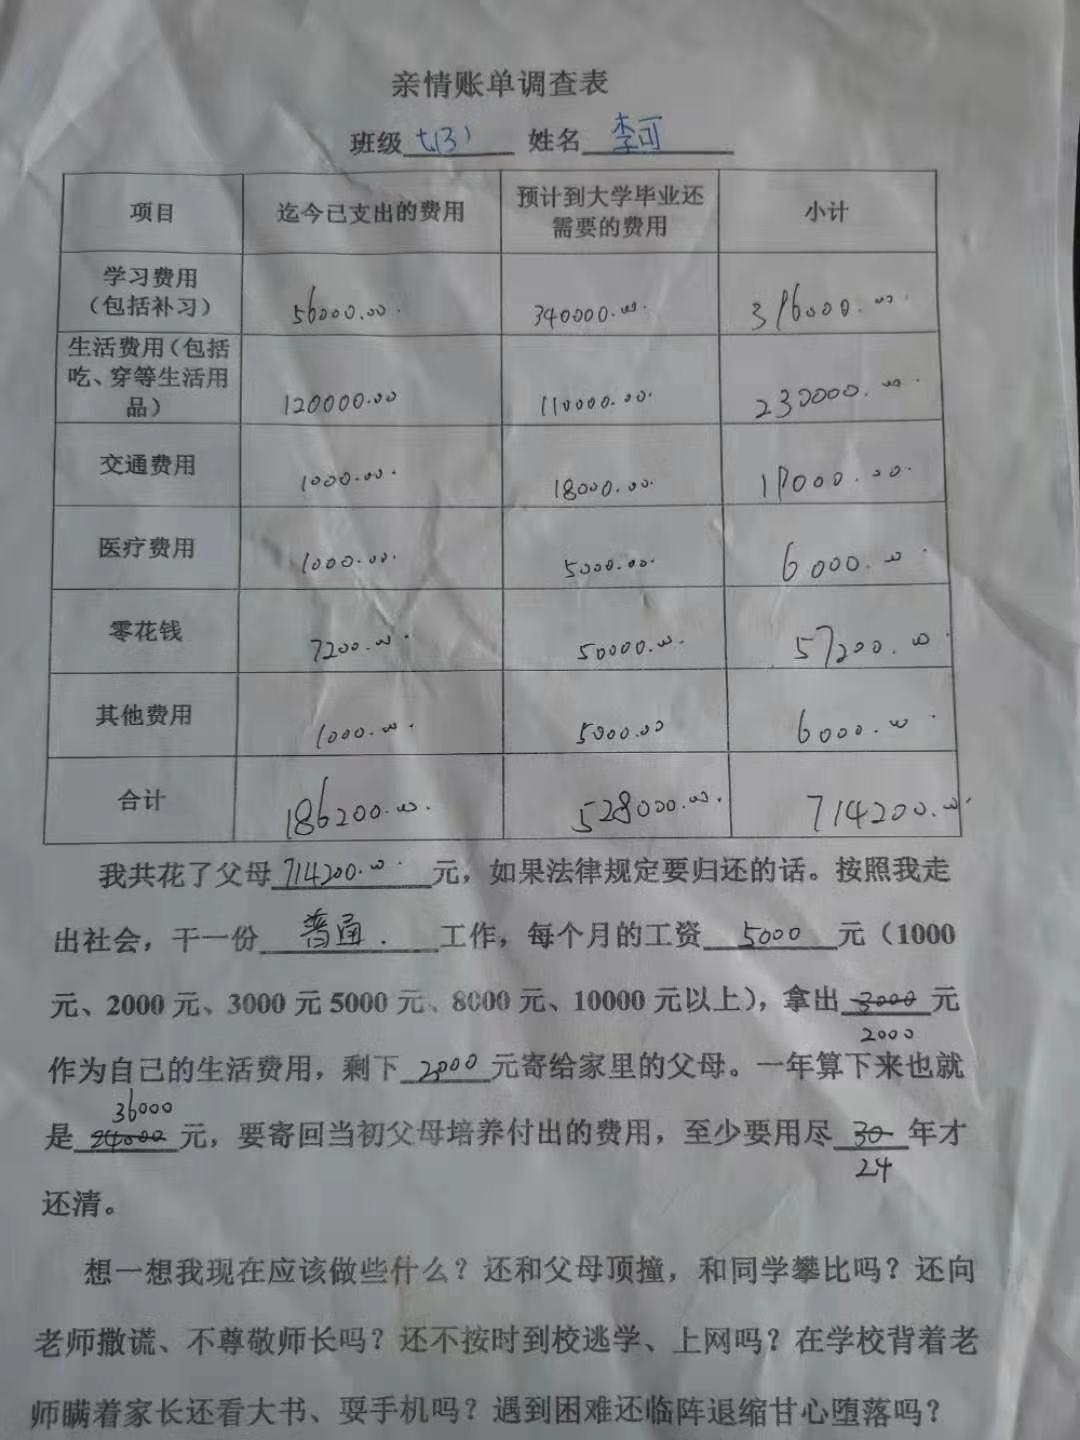 亲情账单调查表
班级 七(3) 姓名 李可
项目 迄今已支出的费用 预计到大学毕业还需要的费用 小计
学习费用（包括补习） 56000.00. 340000.00. 396000.00.
生活费用（包括吃、穿等生活用品） 120000.00 110000.00. 230000.00.
交通费用 1000.00. 18000.00. 19000.00.
医疗费用 1000.00. 5000.00. 6000.00.
零花钱 7200.00. 50000.00. 57200.00.
其他费用 1000.00. 5000.00 6000.00.
合计 186200.00. 528000.00. 714200.00.
我共花了父母714200.00.元，如果法律规定要归还的话。按照我走
出社会，干一份 普通. 工作，每个月的工资 5000 元（1000
元、2000 元、3000 元 5000 元、8000 元、10000 元以上），拿出 3000 元
2000
作为自己的生活费用，剩下 3000 元寄给家里的父母。一年算下来也就
36000
是 24000 元，要寄回当初父母培养付出的费用，至少要用尽 30 年才
24
还清。
想一想我现在应该做些什么？还和父母顶撞，和同学攀比吗？还向
老师撒谎、不尊敬师长吗？还不按时到校逃学、上网吗？在学校背着老
师瞒着家长还看大书、耍手机吗？遇到困难还临阵退缩甘心堕落吗？